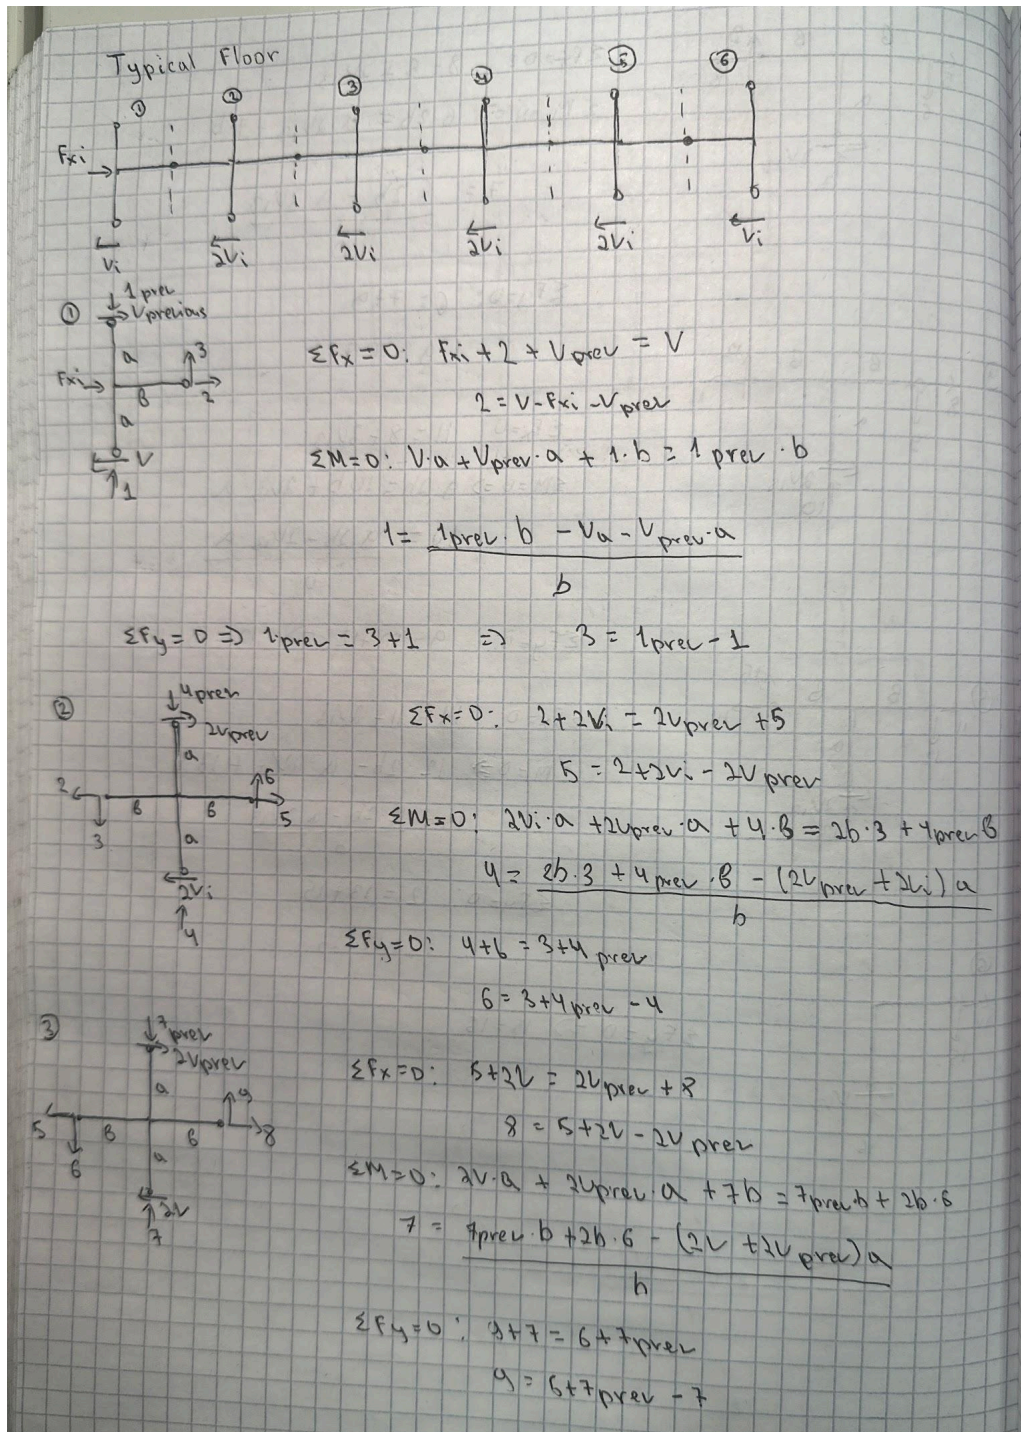 Typical Floor
① ② ③ ④ ⑤ ⑥
Fxi
Vi 2Vi 2Vi 2Vi 2Vi Vi
①
1 prev
Vprevious
a
3
Fxi
b
2
a
V
1
ΣFx = 0: Fxi + 2 + Vprev = V
2 = V - Fxi - Vprev
ΣM=0: V·a + Vprev·a + 1·b = 1 prev · b
1 = 1prev · b - Va - Vprev·a
b
ΣFy = 0 => 1prev = 3+1 => 3 = 1prev - 1
②
4prev
2Vprev
a
2 6
b b
3 5
a
2Vi
4
ΣFx=0: 2+2Vi = 2Vprev +5
5 = 2+2Vi - 2Vprev
ΣM=0: 2Vi·a +2Vprev·a + 4·b = 2b·3 + 4prev b
4 = 2b·3 + 4prev·b - (2Vprev +2Vi)a
b
ΣFy=0: 4+6 = 3+4prev
6 = 3+4prev - 4
③
7prev
2Vprev
a
9
5 b b 8
6
a
2V
7
ΣFx=0: 5+2V = 2Vprev + 8
8 = 5+2V - 2Vprev
ΣM=0: 2V·a + 2Vprev·a + 7b = 7prev·b + 2b·6
7 = 7prev·b +2b·6 - (2V +2Vprev)a
b
ΣFy=0: 9+7 = 6+7prev
9 = 6+7prev - 7